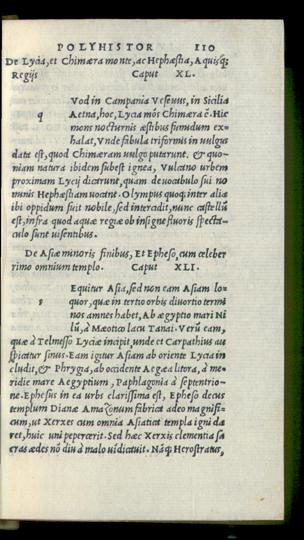 POLYHISTOR 110
De Lycia, et Chimæra monte, ac Hephæstia, Aquisq;
Regijs Caput XL.
q Vod in Campania Vesevus, in Sicilia
Aetna, hoc, Lycia mõs Chimæra ẽ. Hic
mons nocturnis æstibus fumidum ex-
halat, Vnde fabula triformis in vulgus
data est, quod Chimæram vulgo putarunt. & quo-
niam natura ibidem subest ignea, Vulcano urbem
proximam Lycij dicarunt, quam de vocabulo sui no
minis Hephæstiam vocant. Olympus quoq; inter aliæ
ibi oppidum fuit nobile, sed intercidit, nunc castellũ
est, infra quod aquæ regiæ ob insigne fluoris specta-
culo sunt visentibus.
De Asiæ minoris finibus, Et Epheso, cum celeber
rimo omnium templo. Caput XLI.
s Equitur Asia, sed non eam Asiam lo-
quor, quæ in tertio orbis divortio termi
nos amnes habet, Ab ægyptio mari Ni
lũ, à Mæotico lacu Tanai. Verũ eam,
quæ à Telmesso Lyciæ incipit, unde et Carpathius au
spicatur sinus. Eam igitur Asiam ab oriente Lycia in
cludit, & Phrygia, ab occidente Aegæa litora, à me-
ridie mare Aegyptium, Paphlagonia à septentrio-
ne. Ephesus in ea urbs clarissima est, Epheso decus
templum Dianæ Amazonum fabrica adeo magnifi-
cum, ut Xerxes cum omnia Asiatica templa igni da
ret, huic uni pepercerit. Sed hæc Xerxis clementia sa
cras ædes nõ diu à malo vĩdicavit. Nãq; Herostratus,